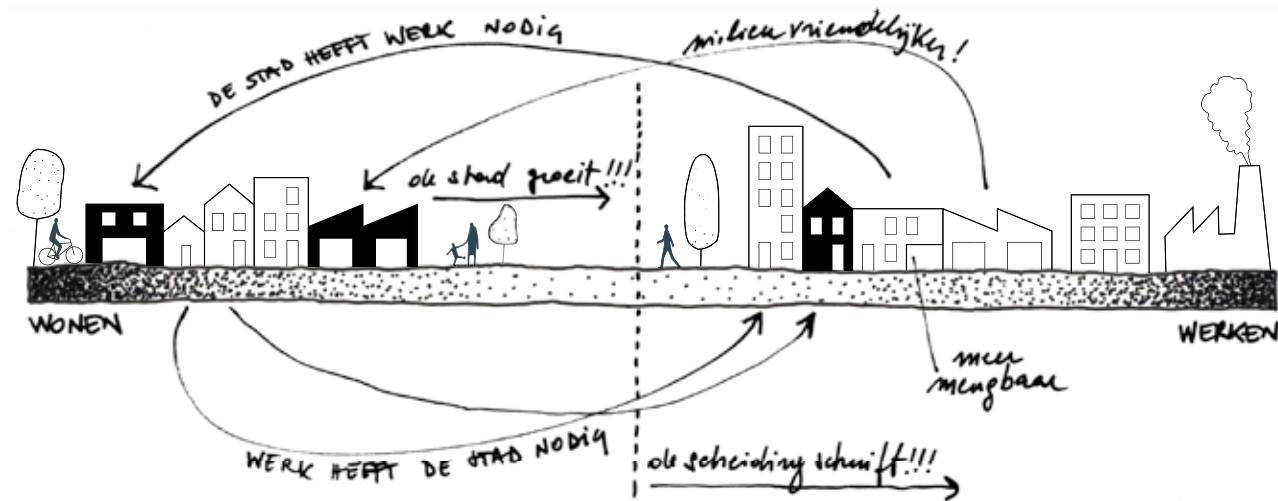 DE STAD HEFFT WERK NODIG
milieu vriendelijker!
de stad groeit!!!
WONEN
WERKEN
meer
mengbaar
WERK HEFFT DE STAD NODIG
de scheiding schuift!!!